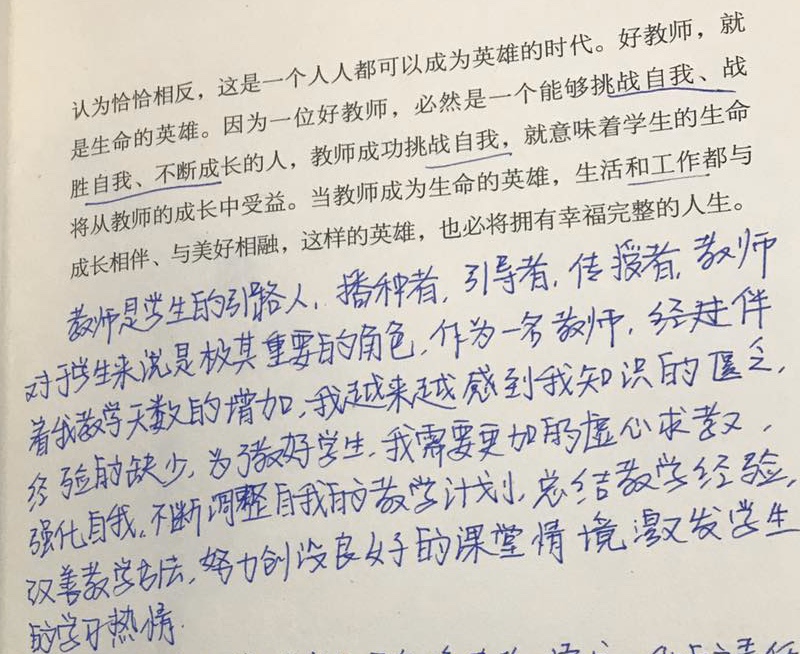 认为恰恰相反，这是一个人人都可以成为英雄的时代。好教师，就
是生命的英雄。因为一位好教师，必然是一个能够挑战自我、战
胜自我、不断成长的人，教师成功挑战自我，就意味着学生的生命
将从教师的成长中受益。当教师成为生命的英雄，生活和工作都与
成长相伴、与美好相融，这样的英雄，也必将拥有幸福完整的人生。
教师是学生的引路人，播种者，引导者，传授者，教师
对于学生来说是极其重要的角色，作为一名教师，经过伴
着我教学天数的增加，我越来越感到我知识的匮乏，
经验的缺少，为了教好学生，我需要更加的虚心求教，
强化自我，不断调整自我的教学计划，总结教学经验，
改善教学方法，努力创设良好的课堂情境激发学生
的学习热情.